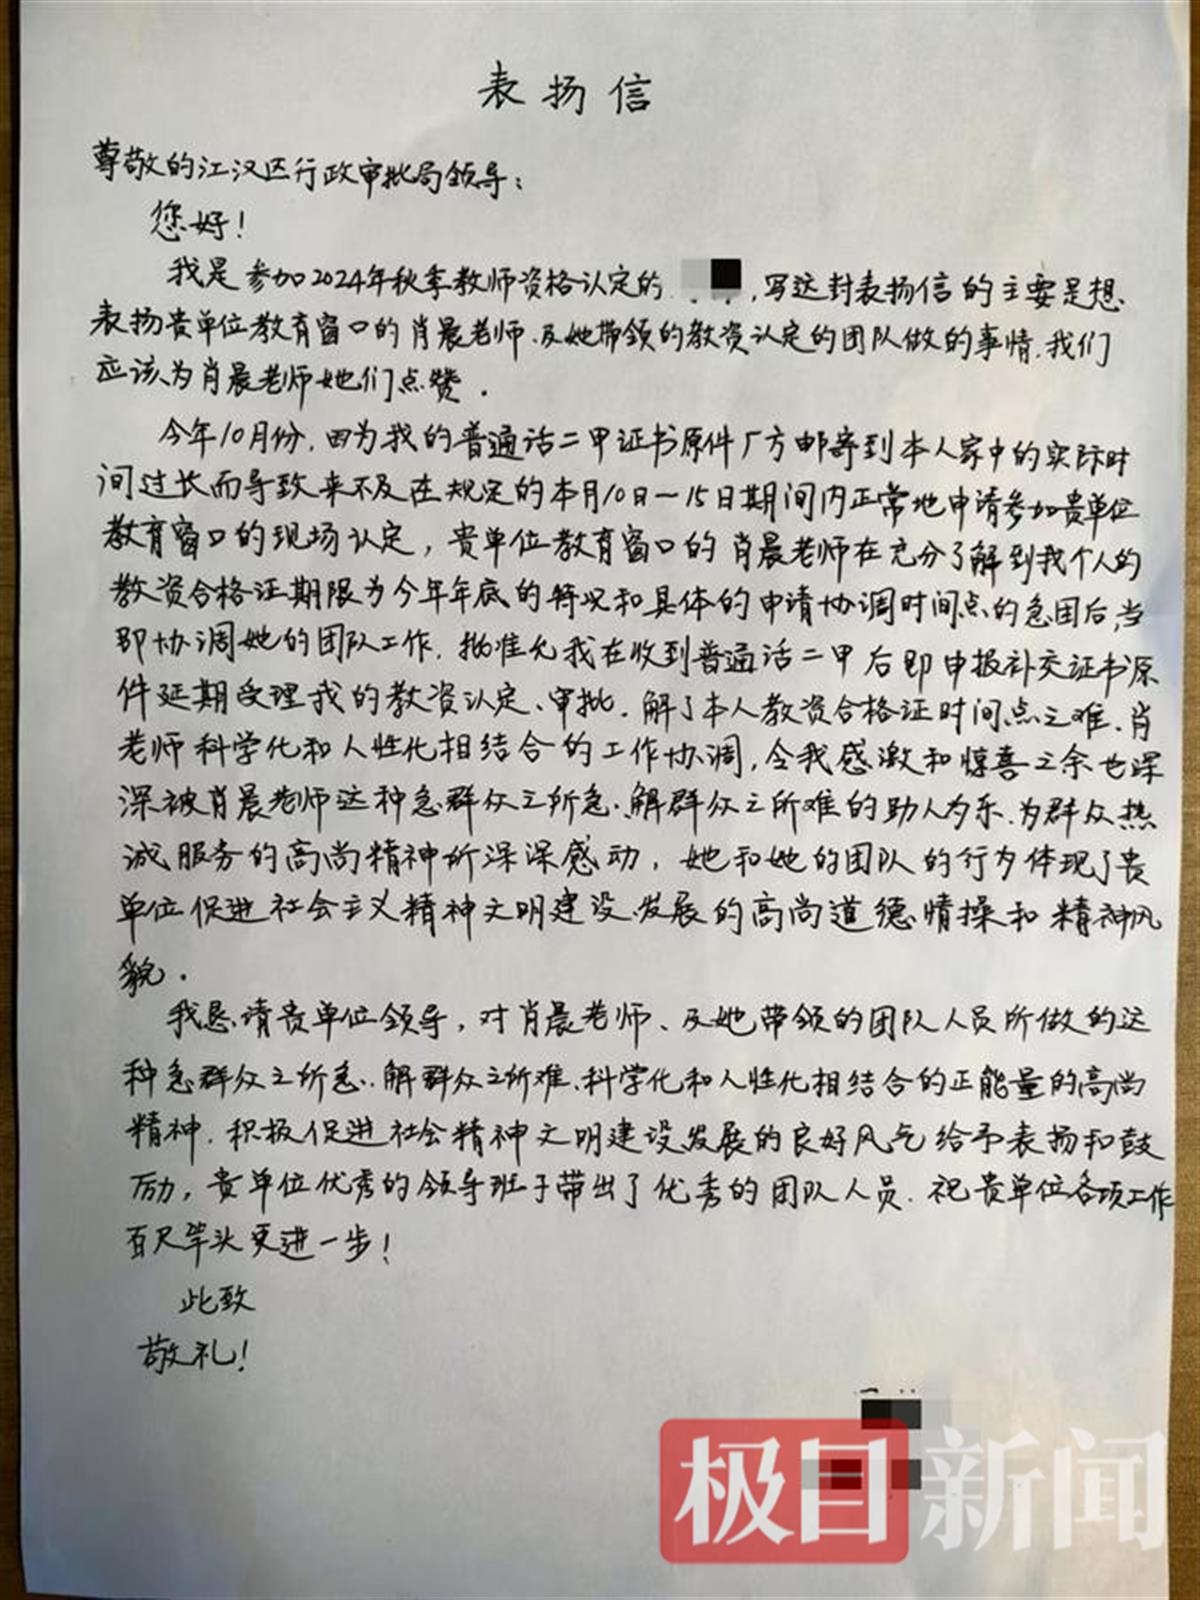 表扬信
尊敬的江汉区行政审批局领导:
您好!
我是参加2024年秋季教师资格认定的 ,写这封表扬信的主要是想
表扬贵单位教育窗口的肖晨老师、及她带领的教资认定的团队做的事情,我们
应该为肖晨老师她们点赞.
今年10月份,因为我的普通话二甲证书原件厂方邮寄到本人家中的实际时
间过长而导致来不及在规定的本月10日~15日期间内正常地申请参加贵单位
教育窗口的现场认定,贵单位教育窗口的肖晨老师在充分了解到我个人的
教资合格证期限为今年年底的情况和具体的申请协调时间点的急困后,当
即协调她的团队工作,批准允我在收到普通话二甲后即申报补交证书原
件延期受理我的教资认定、审批.解了本人教资合格证时间点之难.肖
老师科学化和人性化相结合的工作协调,令我感激和惊喜之余也深
深被肖晨老师这种急群众之所急、解群众之所难的助人为乐、为群众热
诚服务的高尚精神所深深感动,她和她的团队的行为体现了贵
单位促进社会主义精神文明建设、发展的高尚道德情操和精神风
貌.
我恳请贵单位领导,对肖晨老师、及她带领的团队人员所做的这
种急群众之所急、解群众之所难、科学化和人性化相结合的正能量的高尚
精神,积极促进社会精神文明建设、发展的良好风气给予表扬和鼓
励,贵单位优秀的领导班子带出了优秀的团队人员.祝贵单位各项工作
百尺竿头更进一步!
此致
敬礼!
极目新闻